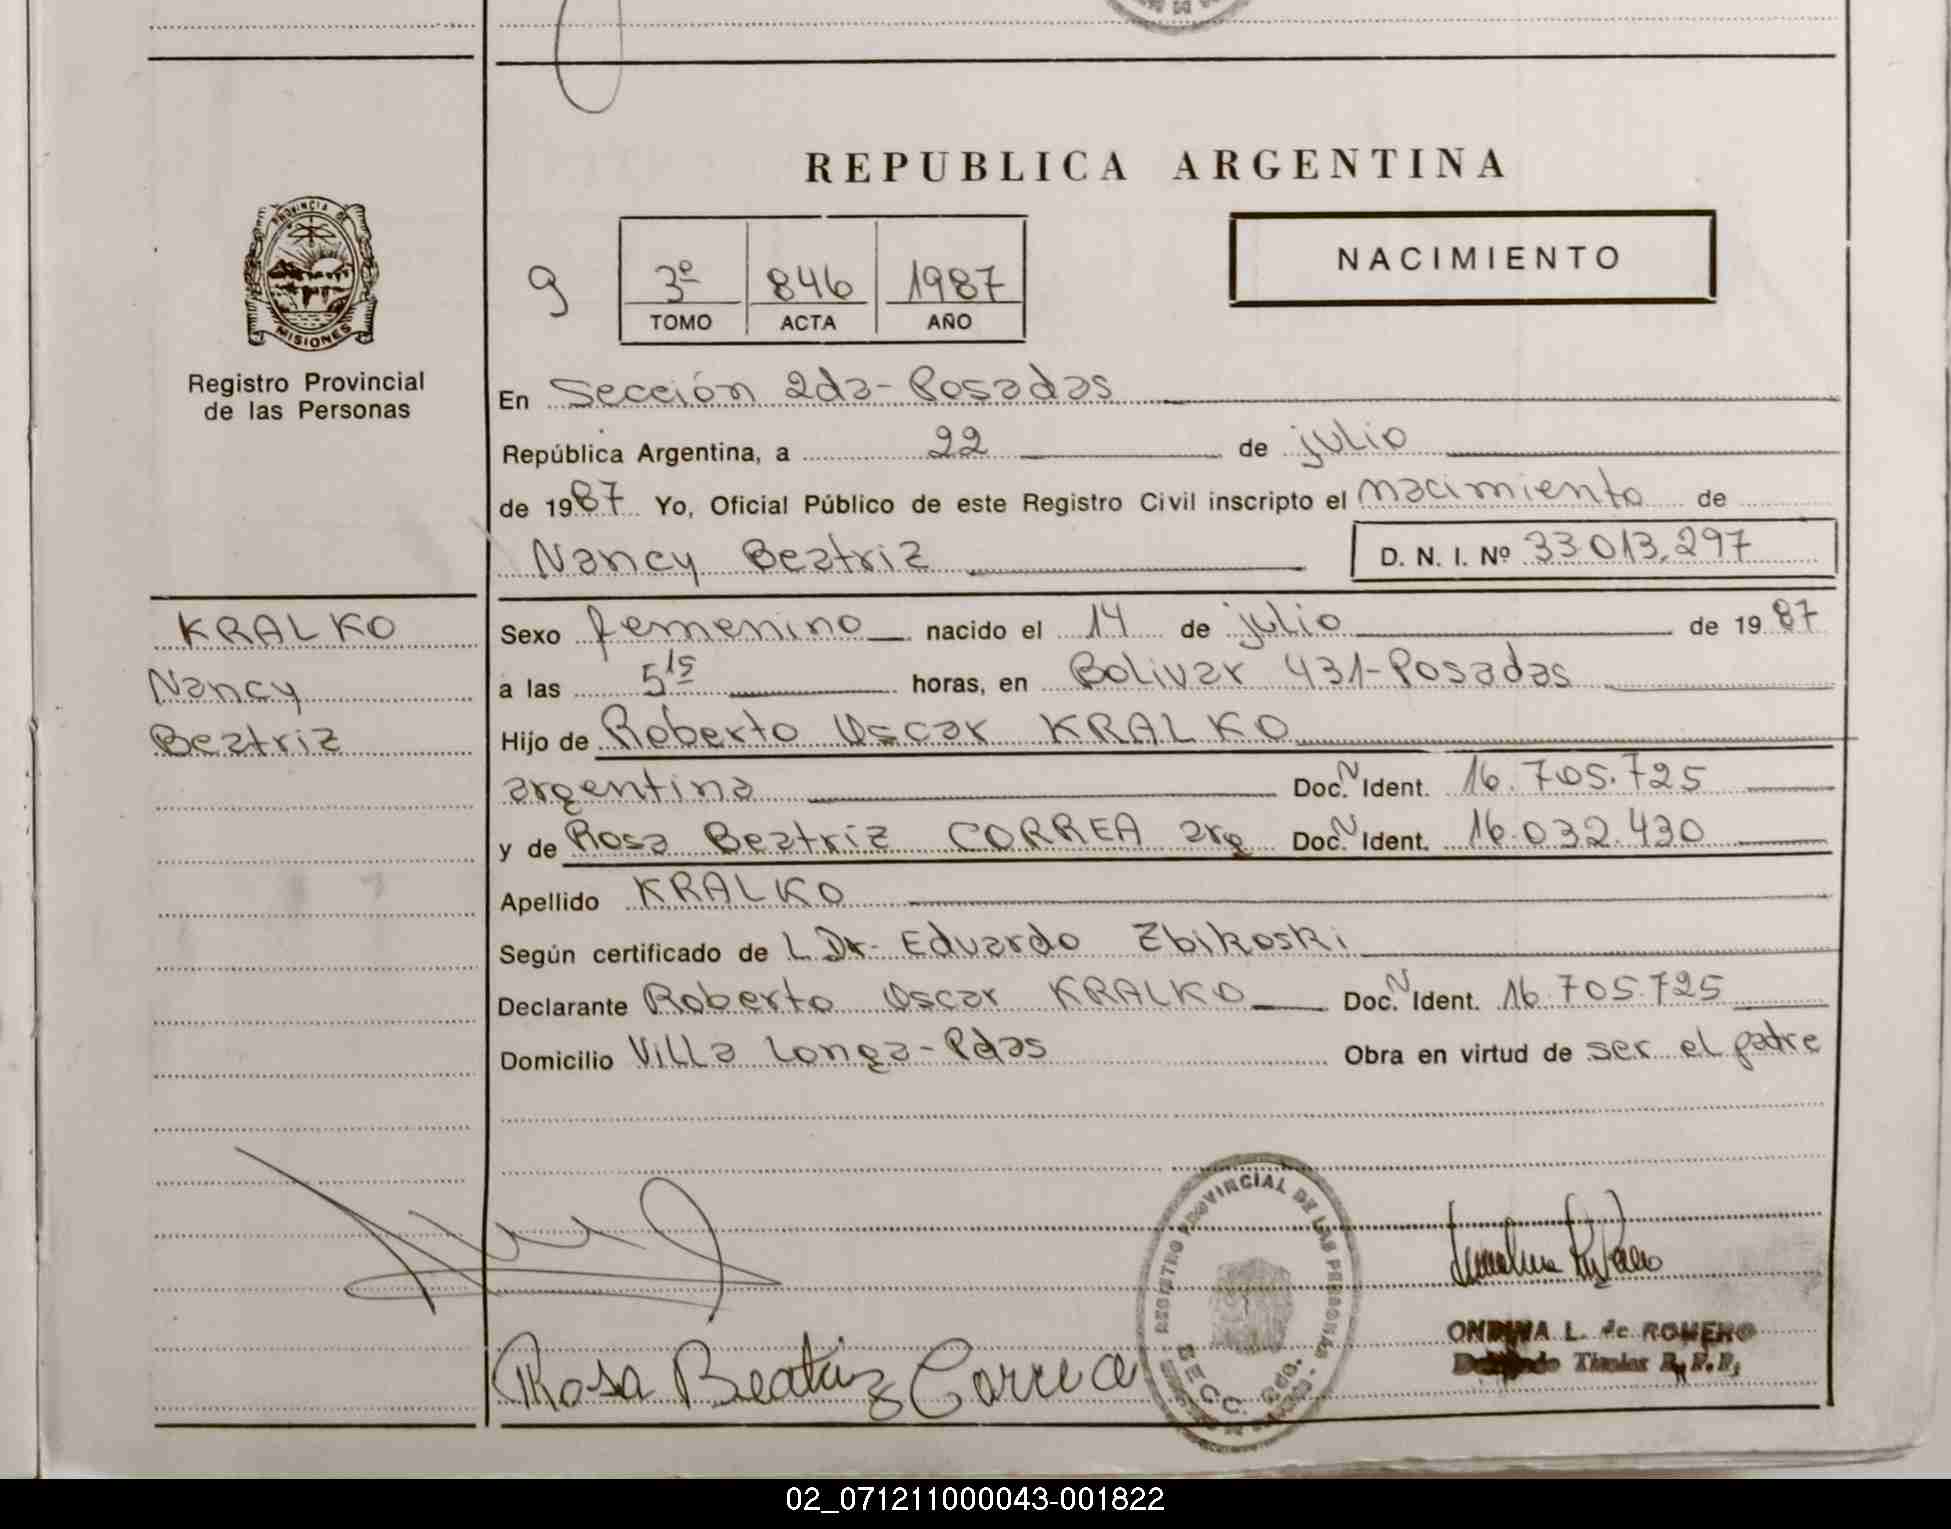 REPUBLICA ARGENTINA
PROVINCIA DE
MISIONES
Registro Provincial
de las Personas
9
3º 846 1987
TOMO ACTA AÑO
NACIMIENTO
En Sección 2da-Posadas
República Argentina, a 22 de julio
de 1987 Yo, Oficial Público de este Registro Civil inscripto el nacimiento de
Nancy Beatriz D. N. I. Nº 33.013.297
KRALKO
Nancy
Beatriz
Sexo femenino nacido el 14 de julio de 1987
a las 5 15 horas, en Bolivar 431-Posadas
Hijo de Roberto Oscar KRALKO
argentina Doc. N Ident. 16.705.725
y de Rosa Beatriz CORREA arg Doc. N Ident. 16.032.430
Apellido KRALKO
Según certificado de L Dr. Eduardo Zbikoski
Declarante Roberto Oscar KRALKO Doc. N Ident. 16.705.725
Domicilio Villa Longa-Pdas Obra en virtud de ser el padre
REGISTRO PROVINCIAL DE LAS PERSONAS
SECC. 2da.
Rosa Beatriz Correa
ONDINA L. de ROMERO
Titular
02_071211000043-001822